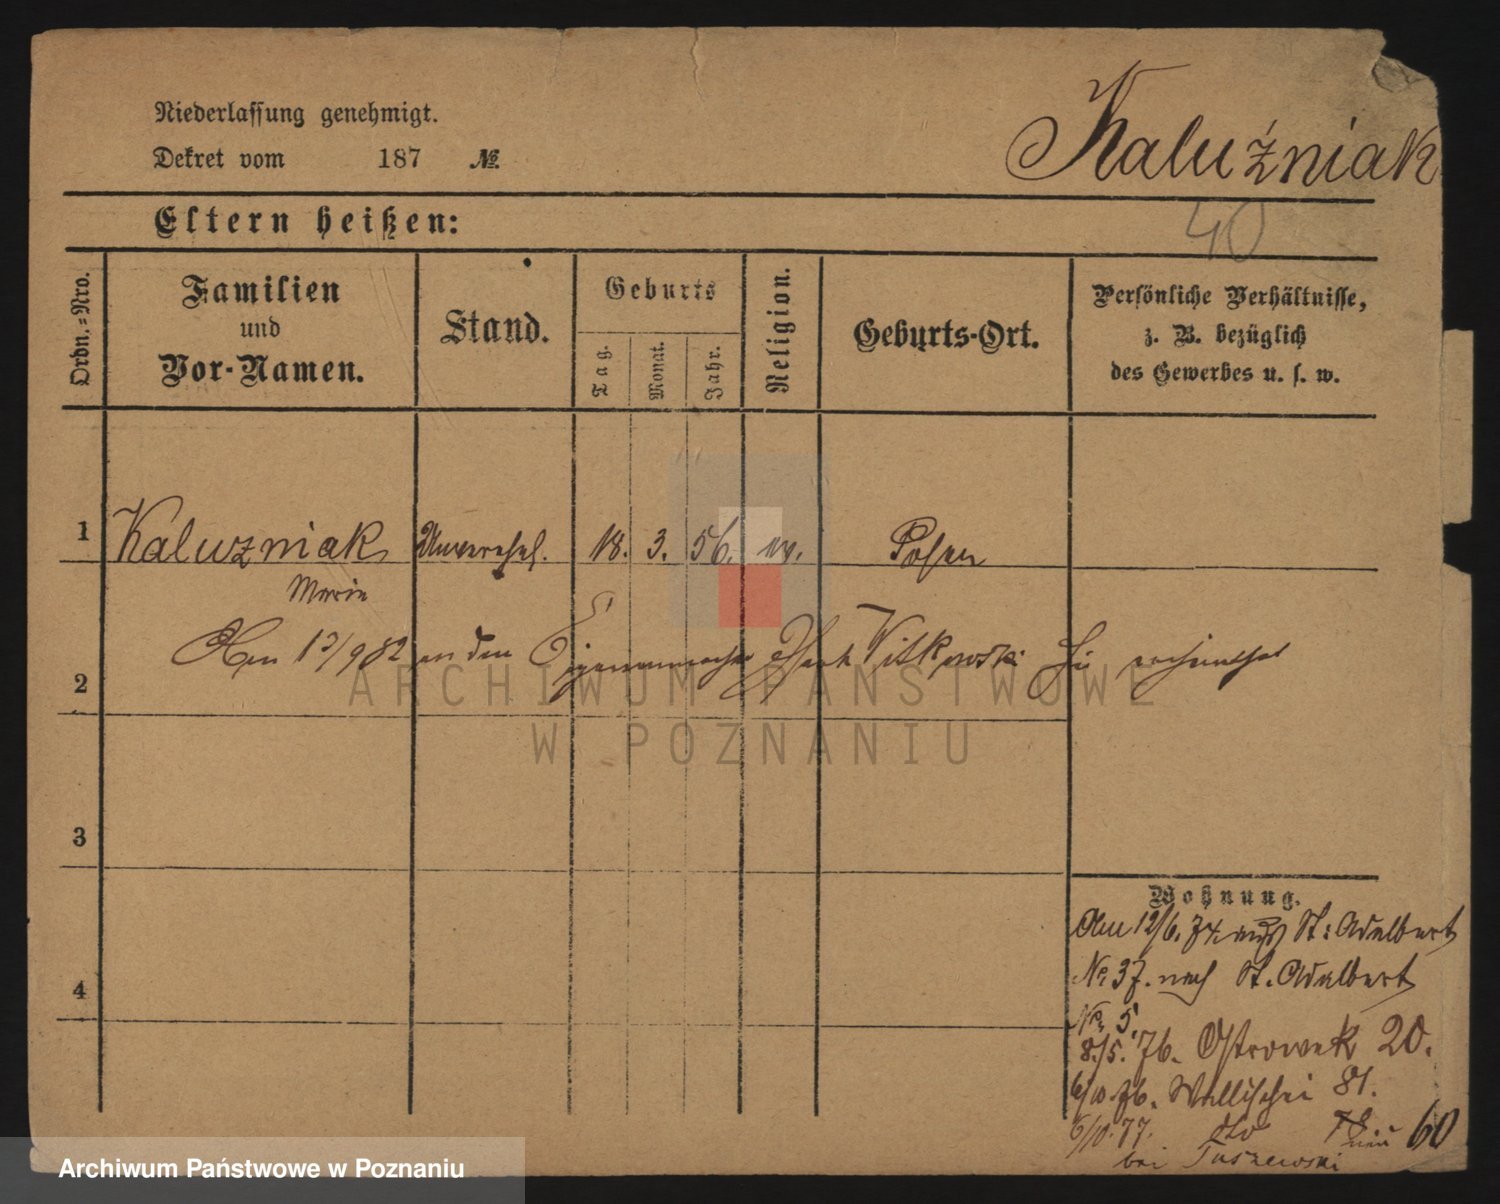 Niederlassung genehmigt.
Dekret vom 187 No.
Kaluźniak
Eltern heißen:
40
Ordn.=Nro.
Familien
und
Vor-Namen.
Stand.
Geburts
Tag.
Monat.
Jahr.
Religion.
Geburts-Ort.
Persönliche Verhältnisse,
z. B. bezüglich
des Gewerbes u. s. w.
1 Kaluzniak Unverehel. 18. 3. 56. Posen
Marie
2 an den Witkowski
ARCHIWUM PAŃSTWOWE
W POZNANIU
3
Wohnung.
Am 12/6. 74 aus St: Adalbert
No 37. nach St. Adalbert
4
No. 5.
8./5. 76. Ostrowek 20.
6/10. 76. Wallischei 81.
6/10. 77. dto 78. neu 60
bei Tuszewski
Archiwum Państwowe w Poznaniu